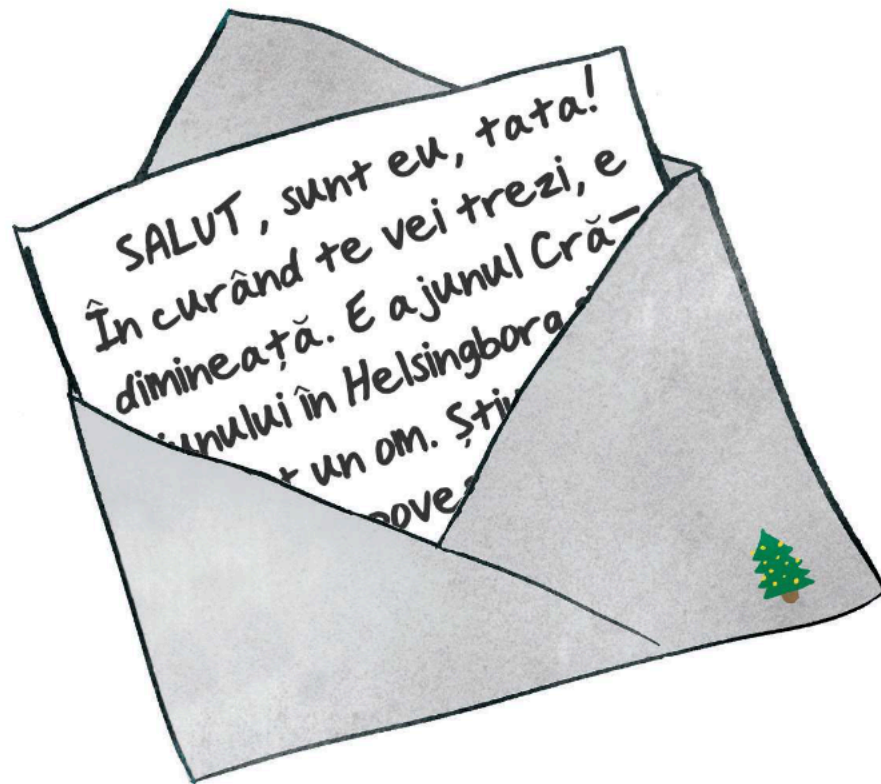 SALUT, sunt eu, tata!
În curând te vei trezi, e
dimineață. E ajunul Cră-
ciunului în Helsingborg
un om.